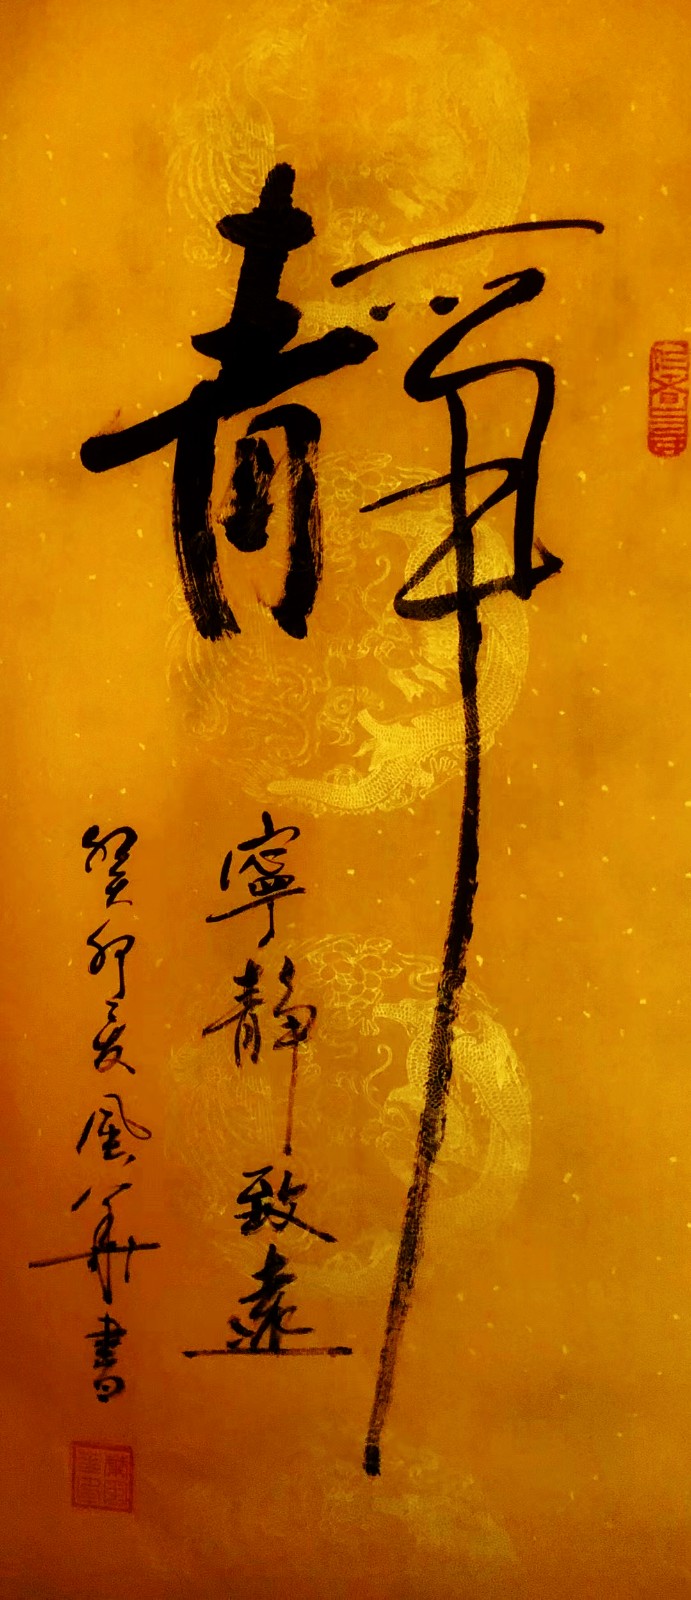 靜
寧靜致遠
癸卯夏風華書